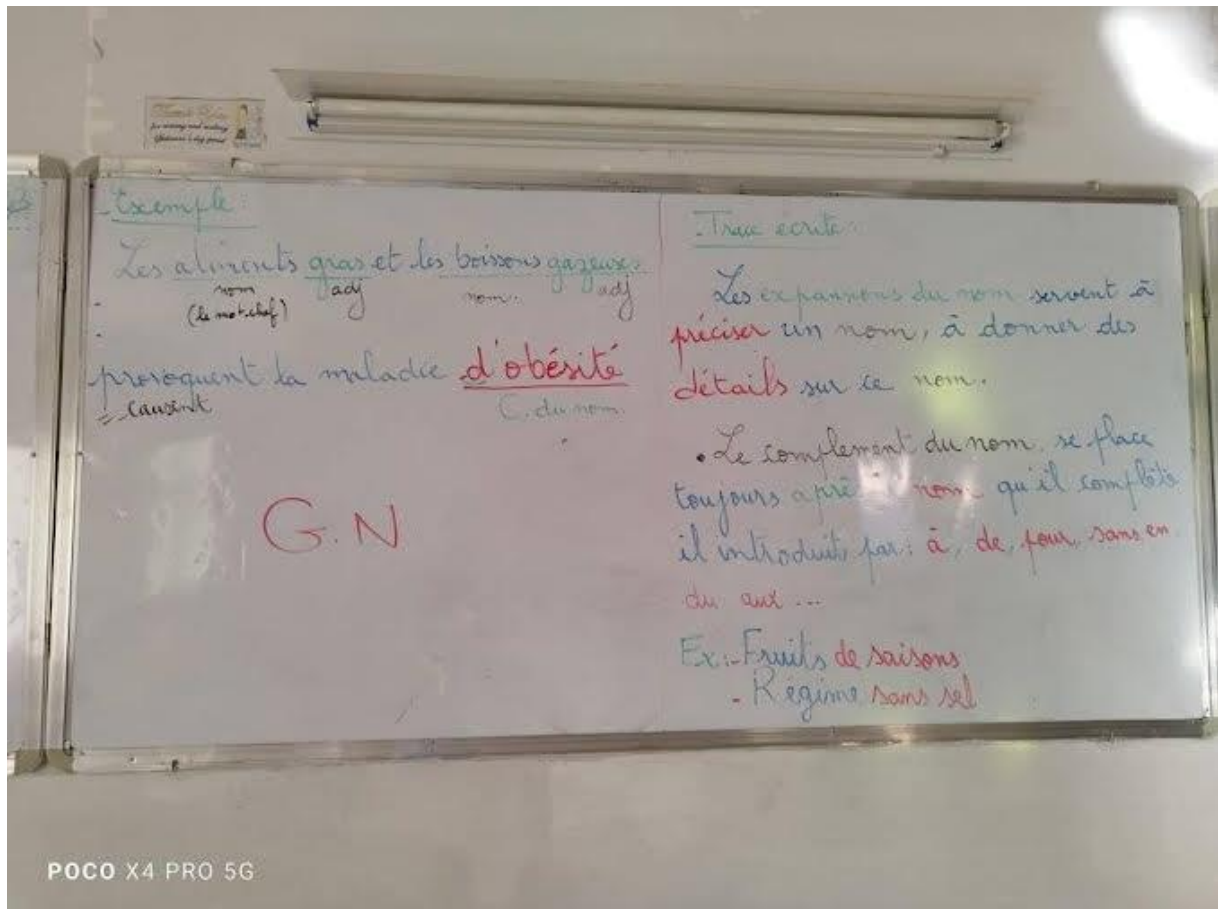 Exemple:
Les aliments gras et les boissons gazeuses
nom adj nom. adj
(le mot-chef)
provoquent la maladie d'obésité
= causent C. du nom.
G.N
Trace écrite:
Les expansions du nom servent à
préciser un nom, à donner des
détails sur ce nom.
• Le complement du nom se place
toujours nom qu'il complète
il introduit par: à, de, pour, sans en
du aux ...
Ex:- Fruits de saisons
- Régime sans sel
POCO X4 PRO 5G